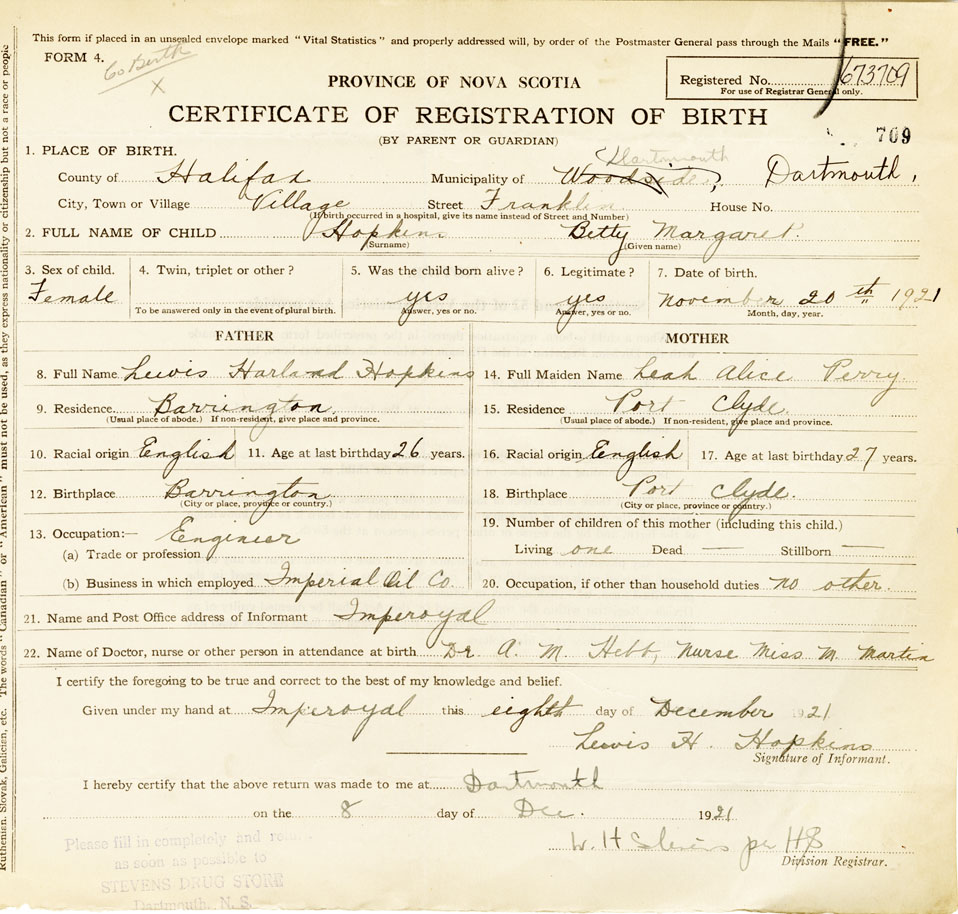 This form if placed in an unsealed envelope marked "Vital Statistics" and properly addressed will, by order of the Postmaster General pass through the Mails "FREE."
FORM 4.
Co Birth
X
Registered No. 673709
For use of Registrar General only.
PROVINCE OF NOVA SCOTIA
CERTIFICATE OF REGISTRATION OF BIRTH
(BY PARENT OR GUARDIAN)
709
1. PLACE OF BIRTH.
Dartmouth
County of Halifax Municipality of Woodside, Dartmouth,
City, Town or Village Village Street Franklin House No.
(If birth occurred in a hospital, give its name instead of Street and Number)
2. FULL NAME OF CHILD Hopkins Betty Margaret.
(Surname) (Given name)
3. Sex of child. 4. Twin, triplet or other? 5. Was the child born alive? 6. Legitimate? 7. Date of birth.
Female yes yes November 20th 1921
To be answered only in the event of plural birth. Answer, yes or no. Answer, yes or no. Month, day, year.
FATHER MOTHER
8. Full Name Lewis Harland Hopkins 14. Full Maiden Name Leah Alice Perry.
9. Residence Barrington. 15. Residence Port Clyde.
(Usual place of abode.) If non-resident, give place and province. (Usual place of abode.) If non-resident, give place and province.
10. Racial origin English 11. Age at last birthday 26 years. 16. Racial origin English 17. Age at last birthday 27 years.
12. Birthplace Barrington 18. Birthplace Port Clyde.
(City or place, province or country.) (City or place, province or country.)
13. Occupation:— Engineer 19. Number of children of this mother (including this child.)
(a) Trade or profession Living one Dead — Stillborn —
(b) Business in which employed Imperial Oil Co. 20. Occupation, if other than household duties no other.
21. Name and Post Office address of Informant Imperoyal
22. Name of Doctor, nurse or other person in attendance at birth Dr. A. M. Hebb, Nurse Miss M. Martin
I certify the foregoing to be true and correct to the best of my knowledge and belief.
Given under my hand at Imperoyal this eighth day of December 1921
Lewis H. Hopkins
Signature of Informant.
I hereby certify that the above return was made to me at Dartmouth
on the 8 day of Dec. 1921
W. H Stevens per HS
Division Registrar.
Please fill in completely and
as soon as possible to
STEVENS DRUG STORE
Dartmouth, N. S.
Ruthenian, Slovak, Galician, etc. The words "Canadian" or "American" must not be used, as they express nationality or citizenship but not a race or people